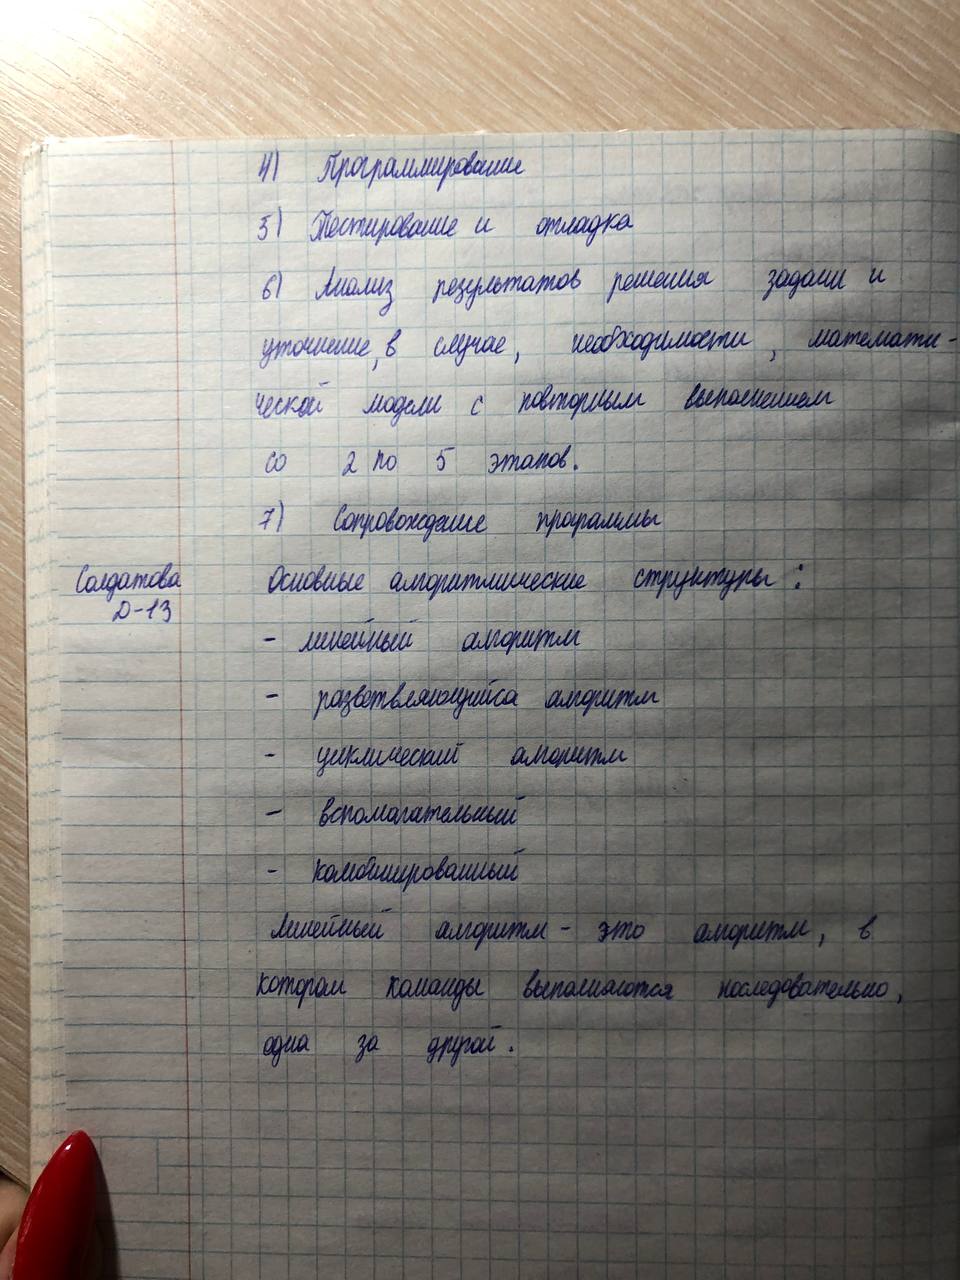 4) Программирование
5) Тестирование и отладка
6) Анализ результатов решения задачи и
уточнение, в случае, необходимости, математи-
ческой модели с повторным выполнением
со 2 по 5 этапов.
7) Сопровождение программы
Солдатова
Д-13
Основные алгоритмические структуры:
- линейный алгоритм
- разветвляющийся алгоритм
- циклический алгоритм
- вспомагательный
- комбинированный
Линейный алгоритм - это алгоритм, в
котором команды выполняются последовательно,
одна за другой.